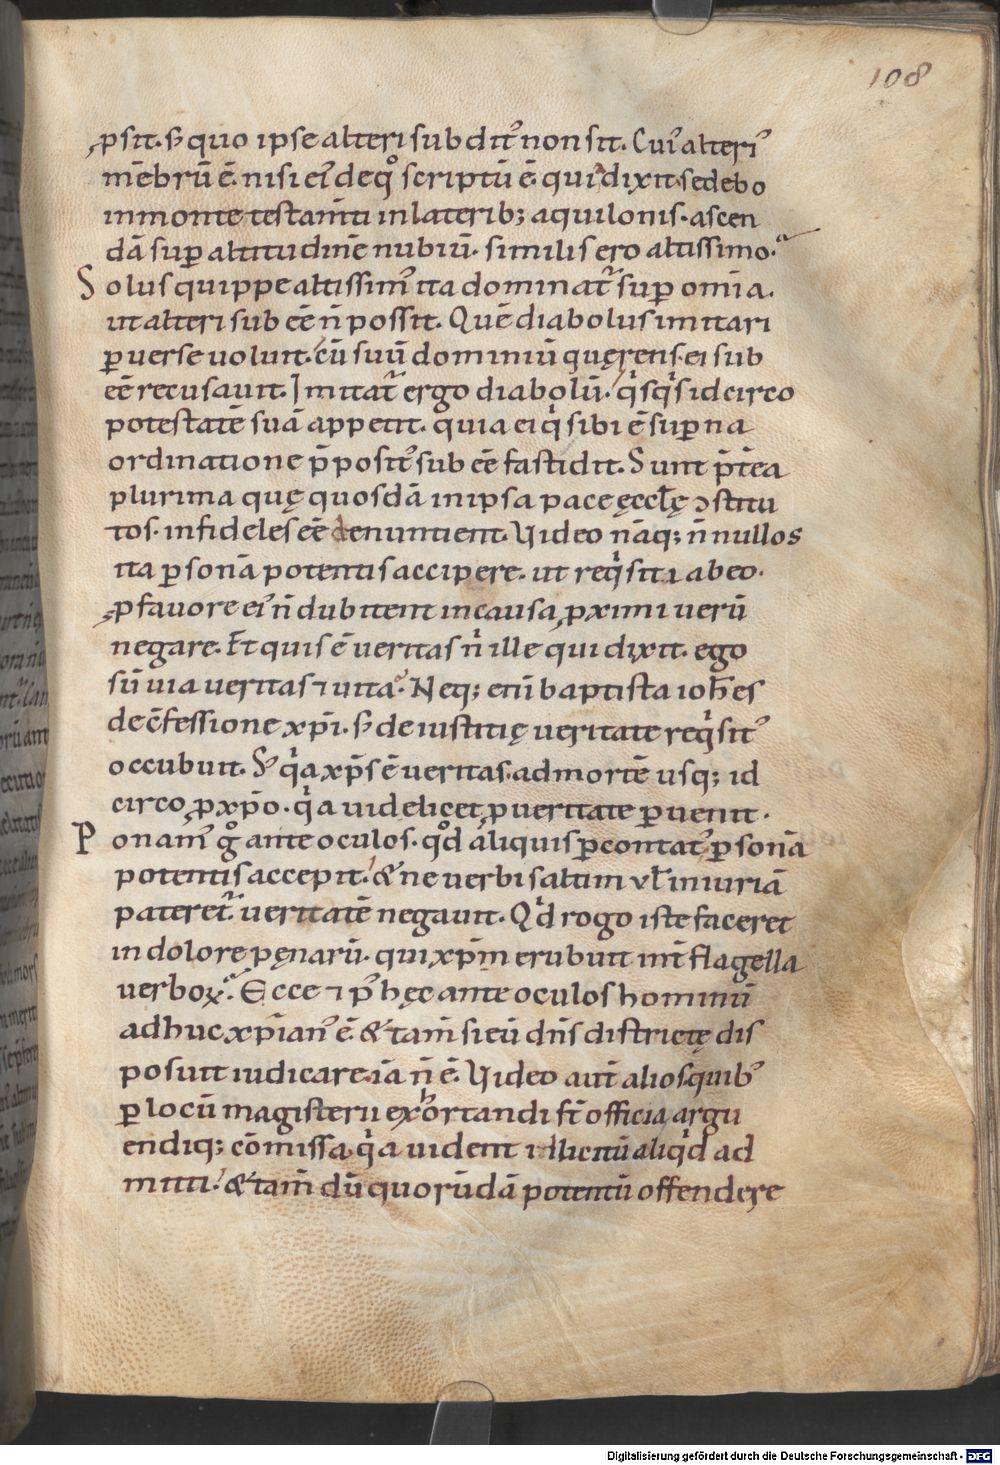 108
ꝓsit. sꝫ quo ipse alteri subdit᷒ non sit. Cui᷒ alteri᷒
mēbrū ē. nisi ei᷒ de qͦ scriptū ē. qui dixit. sedebo
in monte testam̄ti in laterib; aquilonis. ascen
dā suꝑ altitudinē nubiū. similis ero altissimo.
Solus quippe altissim᷒ ita dominat᷑ suꝑ omīa.
ut alteri sub eē n̄ possit. Quē diabolus imitari
ꝑuerse uoluit. cū suū dominiū quęrens. ei sub
eē recusauit. Imitat᷑ ergo diabolū. qͥsqͥs idcirco
potestatē suā appetit. quia ei qͥ sibi ē suꝑna
ordinatione p̄posit᷒ sub eē fastidit. Sunt p̄t̄ea
plurima quę quosdā in ipsa pace ęccl̄ę ↄstitu
tos. infideles eē denuntient. Video nāq; n̄nullos
ita ꝑsonā potentis accipere. ut reqͥsiti ab eo.
ꝓ fauore ei᷒ n̄ dubitent in causa ꝓximi uerū
negare. Et quis ē ueritas nͥ ille qui dixit. ego
sū uia ueritas ⁊ uita. Neq; eni᷒ baptista ioh̄es
de c̄fessione xp̄i. sꝫ de iustitię ueritate reqͥsit᷒
occubuit. Sꝫ qͥa xp̄s ē ueritas. ad mortē usq; id
circo ꝓ xp̄o. qͥa uidelicet ꝓ ueritate ꝑuenit.
Ponam᷒ gͦ ante oculos. qͦd aliquis ꝑcontat᷒ ꝑsonā
potentis accepit. & ne uerbi saltim ul̄ iniuriā
pateret᷑. ueritatē negauit. Qͥd rogo iste faceret
in dolore pęnarū. qui xp̄m erubuit int̄ flagella
uerboꝝ. Ecce ⁊ p᷒ hęc ante oculos hominū
adhuc xp̄ian᷒ ē. & tam̄ si eū dn̄s districtę dis
posuit iudicare. iā n̄ ē. Video aut̄ alios. quib᷒
ꝑ locū magisterii exhortandi st̄ officia argu
endiq; cōmissa. qͥa uident illicitū aliqͥd ad
mitti. & tam̄ dū quorūdā potentū offendere
Digitalisierung gefördert durch die Deutsche Forschungsgemeinschaft - DFG